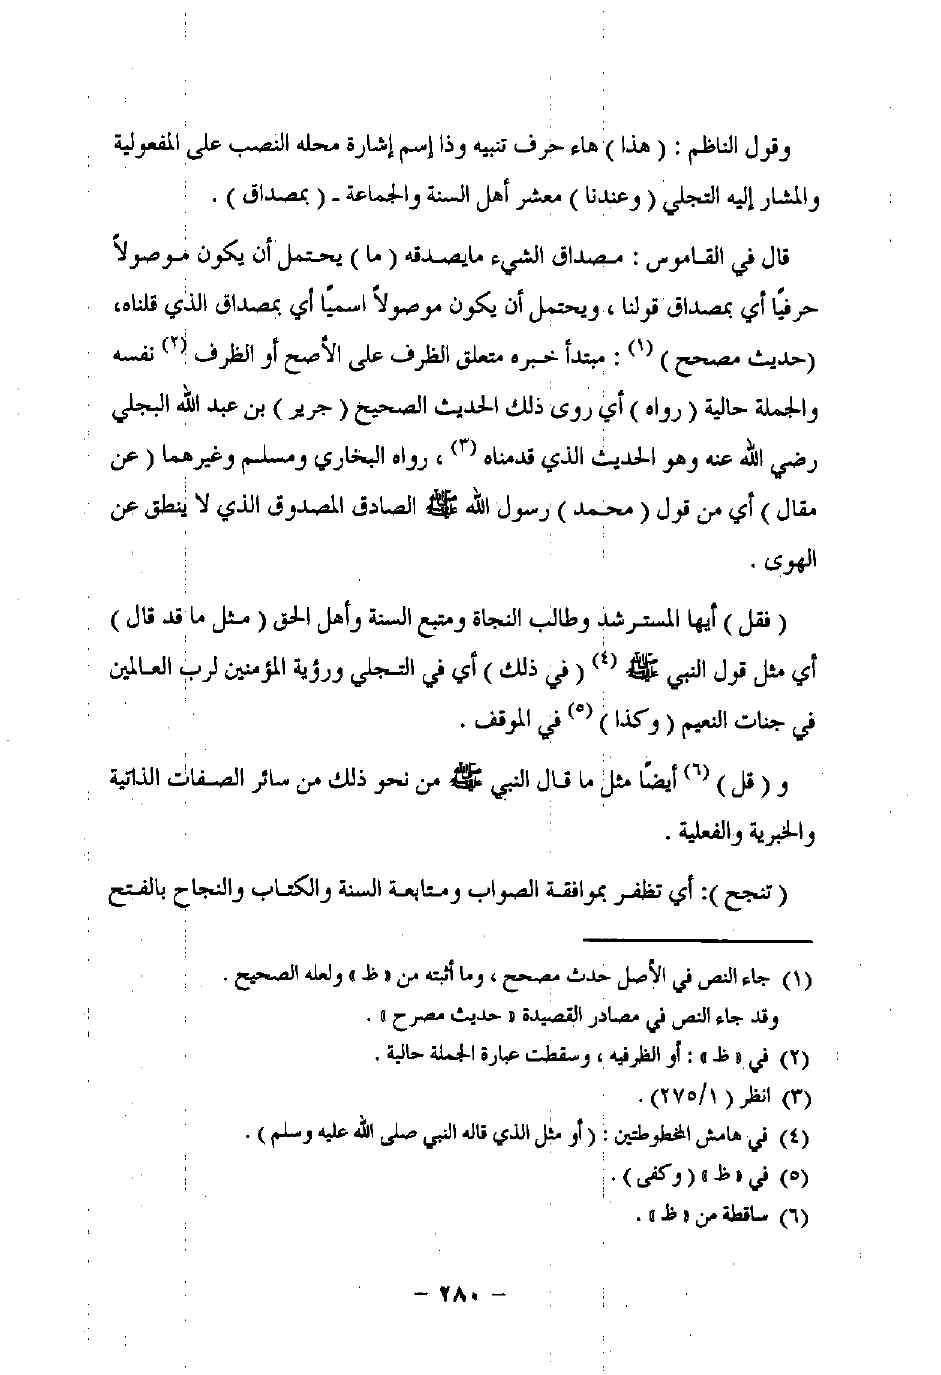 وقول الناظم : ( هذا ) هاء حرف تنبيه وذا إسم إشارة محله النصب على المفعولية
والمشار إليه التجلي ( وعندنا ) معشر أهل السنة والجماعة ـ ( بمصداق ) .
قال في القاموس : مصداق الشيء مايصدقه ( ما ) يحتمل أن يكون موصولاً
حرفيًا أي بمصداق قولنا ، ويحتمل أن يكون موصولاً اسميًا أي بمصداق الذي قلناه،
(حديث مصحح ) (١) : مبتدأ خبره متعلق الظرف على الأصح أو الظرف (٢) نفسه
والجملة حالية ( رواه ) أي روى ذلك الحديث الصحيح ( جرير ) بن عبد الله البجلي
رضي الله عنه وهو الحديث الذي قدمناه (٣) ، رواه البخاري ومسلم وغيرهما ( عن
مقال ) أي من قول ( محمد ) رسول الله ﷺ الصادق المصدوق الذي لا ينطق عن
الهوى .
( فقل ) أيها المسترشد وطالب النجاة ومتبع السنة وأهل الحق ( مثل ما قد قال )
أي مثل قول النبي ﷺ (٤) ( في ذلك ) أي في التجلي ورؤية المؤمنين لرب العالمين
في جنات النعيم ( وكذا ) (٥) في الموقف .
و ( قل ) (٦) أيضًا مثل ما قال النبي ﷺ من نحو ذلك من سائر الصفات الذاتية
والخبرية والفعلية .
( تنجح ): أي تظفر بموافقة الصواب ومتابعة السنة والكتاب والنجاح بالفتح
(١) جاء النص في الأصل حدث مصحح ، وما أثبته من « ظ » ولعله الصحيح .
وقد جاء النص في مصادر القصيدة « حديث مصرح » .
(٢) في « ظ » : أو الظرفيه ، وسقطت عبارة الجملة حالية .
(٣) انظر ( ٢٧٥/١) .
(٤) في هامش المخطوطتين : ( أو مثل الذي قاله النبي صلى الله عليه وسلم ) .
(٥) في « ظ » ( وكفى ) .
(٦) ساقطة من « ظ » .
– ٢٨٠ –